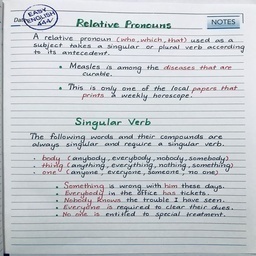 Date
EASY
ENGLISH
444
Relative Pronouns
NOTES
A relative pronoun (who, which, that) used as a
subject takes a singular or plural verb according
to its antecedent.
• Measles is among the diseases that are
curable.
• This is only one of the local papers that
prints a weekly horoscope.
Singular Verb
The following words and their compounds are
always singular and require a singular verb.
- body (anybody, everybody, nobody, somebody)
- thing (anything, everything, nothing, something)
- one (anyone, everyone, someone, no one)
• Something is wrong with him these days.
• Everybody in the office has tickets.
• Nobody knows the trouble I have seen.
• Everyone is required to clear their dues.
• No one is entitled to special treatment.